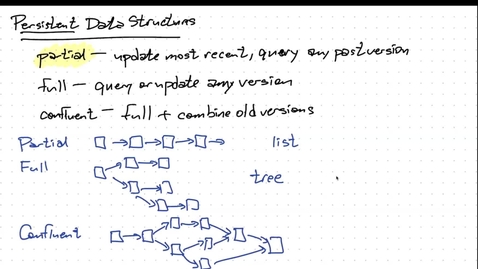 Persistent Data Structures
partial — update most recent, query any past version
full — query or update any version
confluent — full + combine old versions
Partial list
Full
tree
Confluent